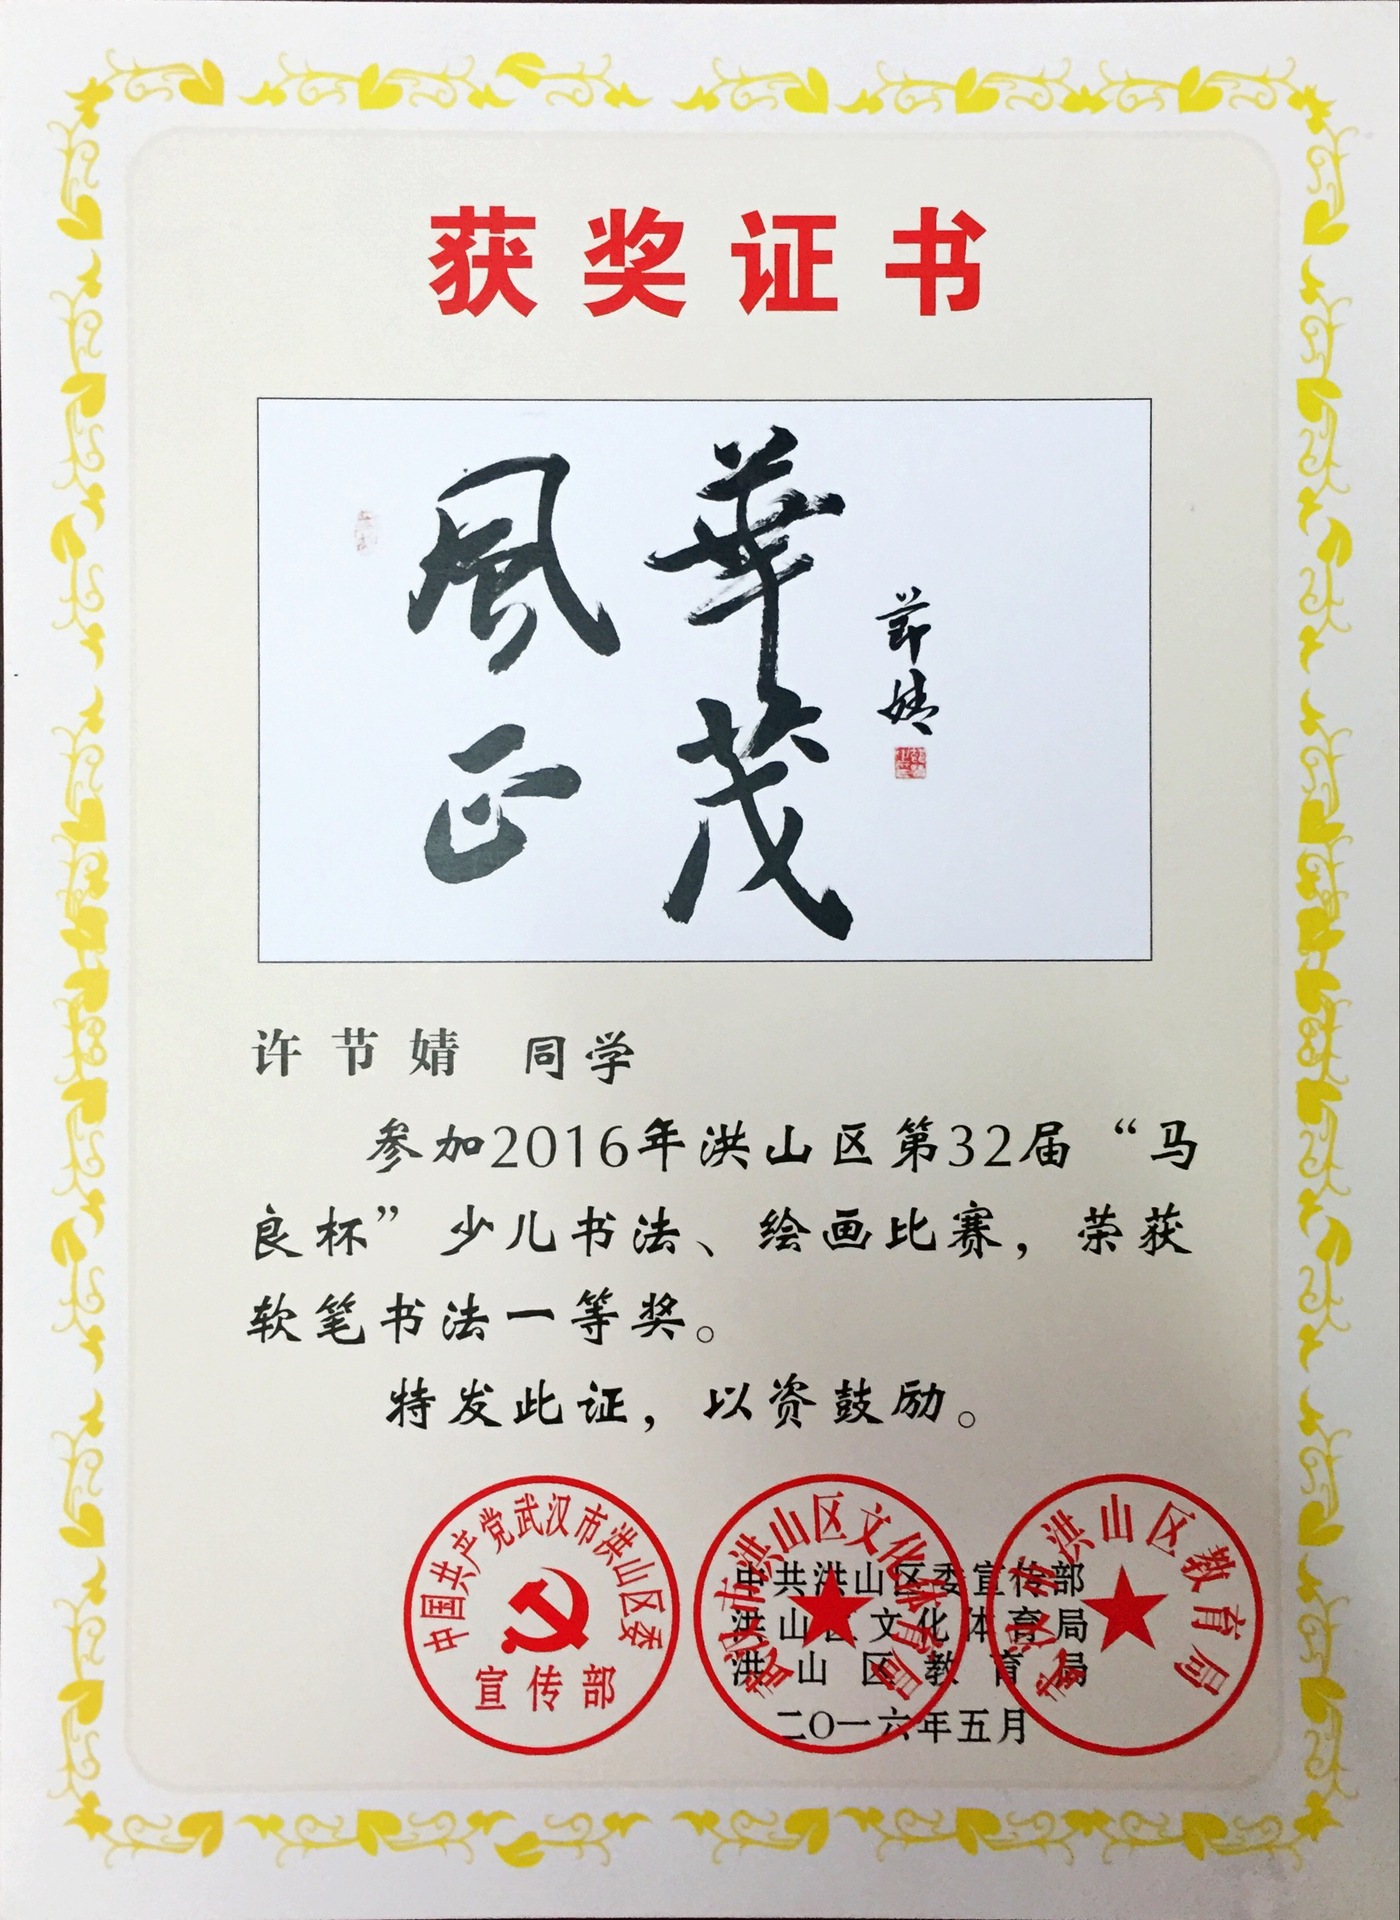 获奖证书
華茂
風正
節婧
许节婧 同学
参加2016年洪山区第32届“马
良杯”少儿书法、绘画比赛，荣获
软笔书法一等奖。
特发此证，以资鼓励。
中国共产党武汉市洪山区委
宣传部
武汉市洪山区文化体育局
武汉市洪山区教育局
中共洪山区委宣传部
洪山区文化体育局
洪山区教育局
二〇一六年五月